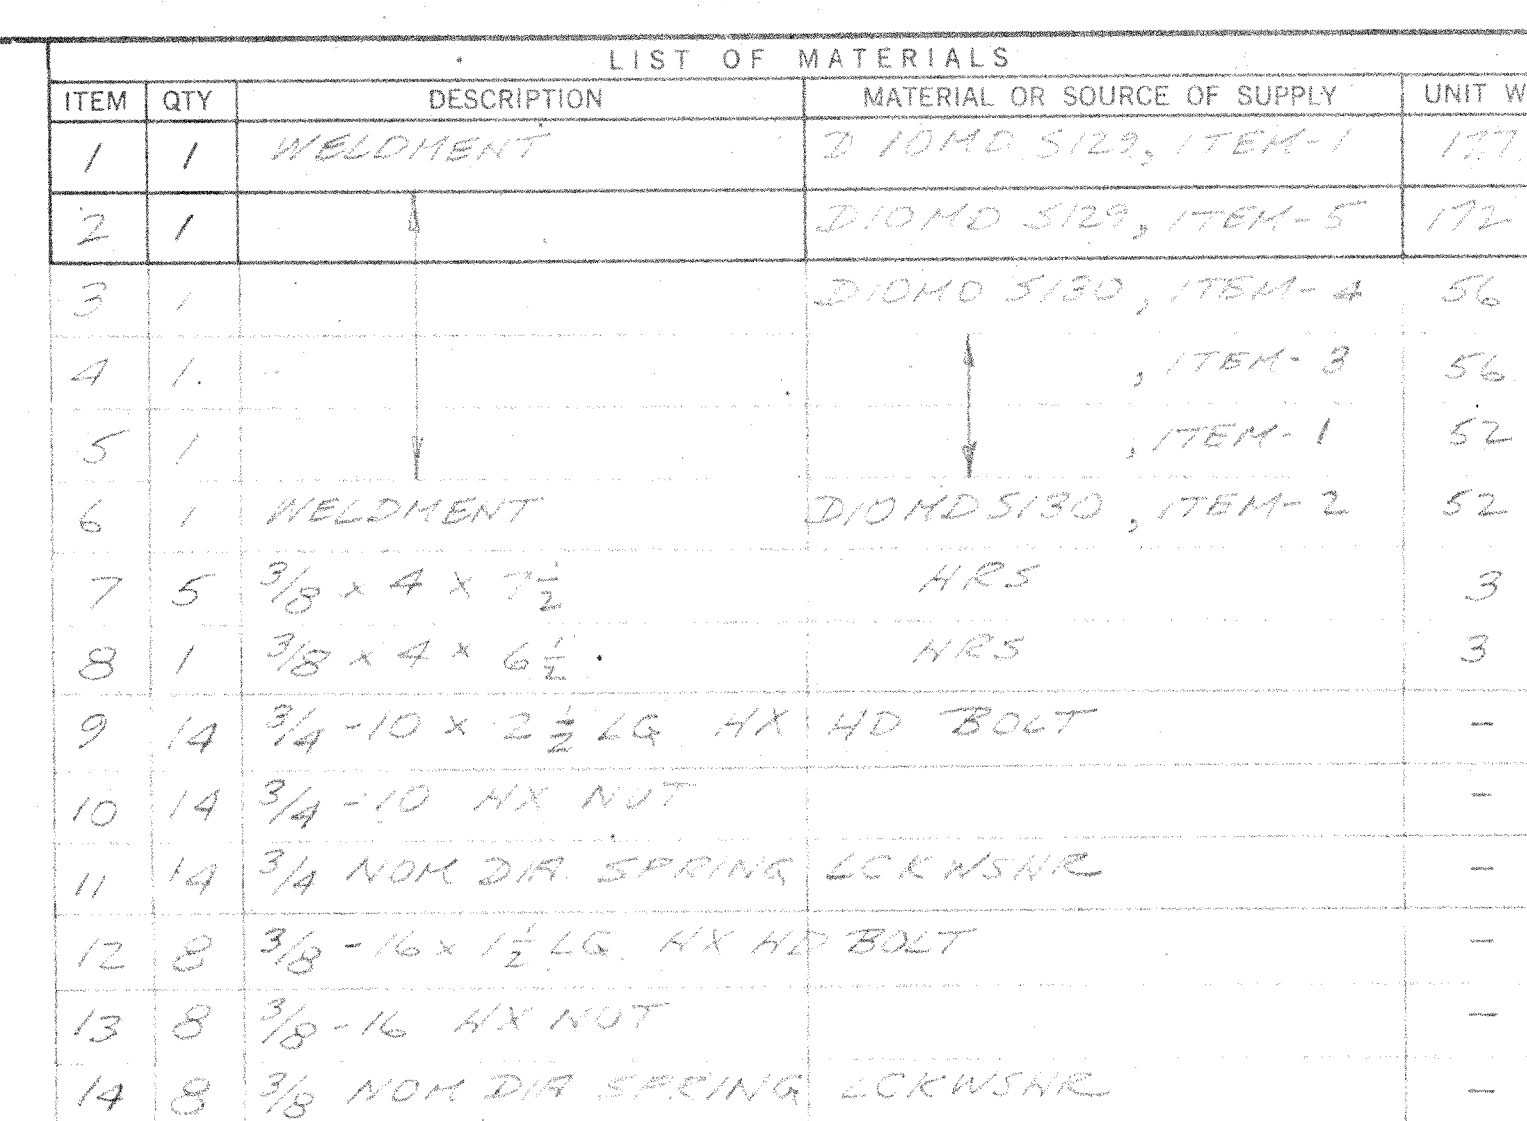 LIST OF MATERIALS
ITEM QTY DESCRIPTION MATERIAL OR SOURCE OF SUPPLY UNIT W
1 1 WELDMENT D10MD S129, ITEM-1 177
2 1 D10MD S129, ITEM-5 172
3 1 D10MD S130, ITEM-4 56
4 1 , ITEM-3 56
5 1 , ITEM-1 52
6 1 WELDMENT D10MD S130, ITEM-2 52
7 5 3/8 x 4 x 7 1/2 HRS 3
8 1 3/8 x 4 x 6 1/2 HRS 3
9 14 3/4-10 x 2 1/2 LG HX HD BOLT -
10 14 3/4-10 HX NUT -
11 14 3/4 NOM DIA. SPRING LCKWSHR -
12 8 3/8-16 x 1 1/2 LG. HX HD BOLT -
13 8 3/8-16 HX NUT -
14 8 3/8 NOM DIA SPRING LCKWSHR -